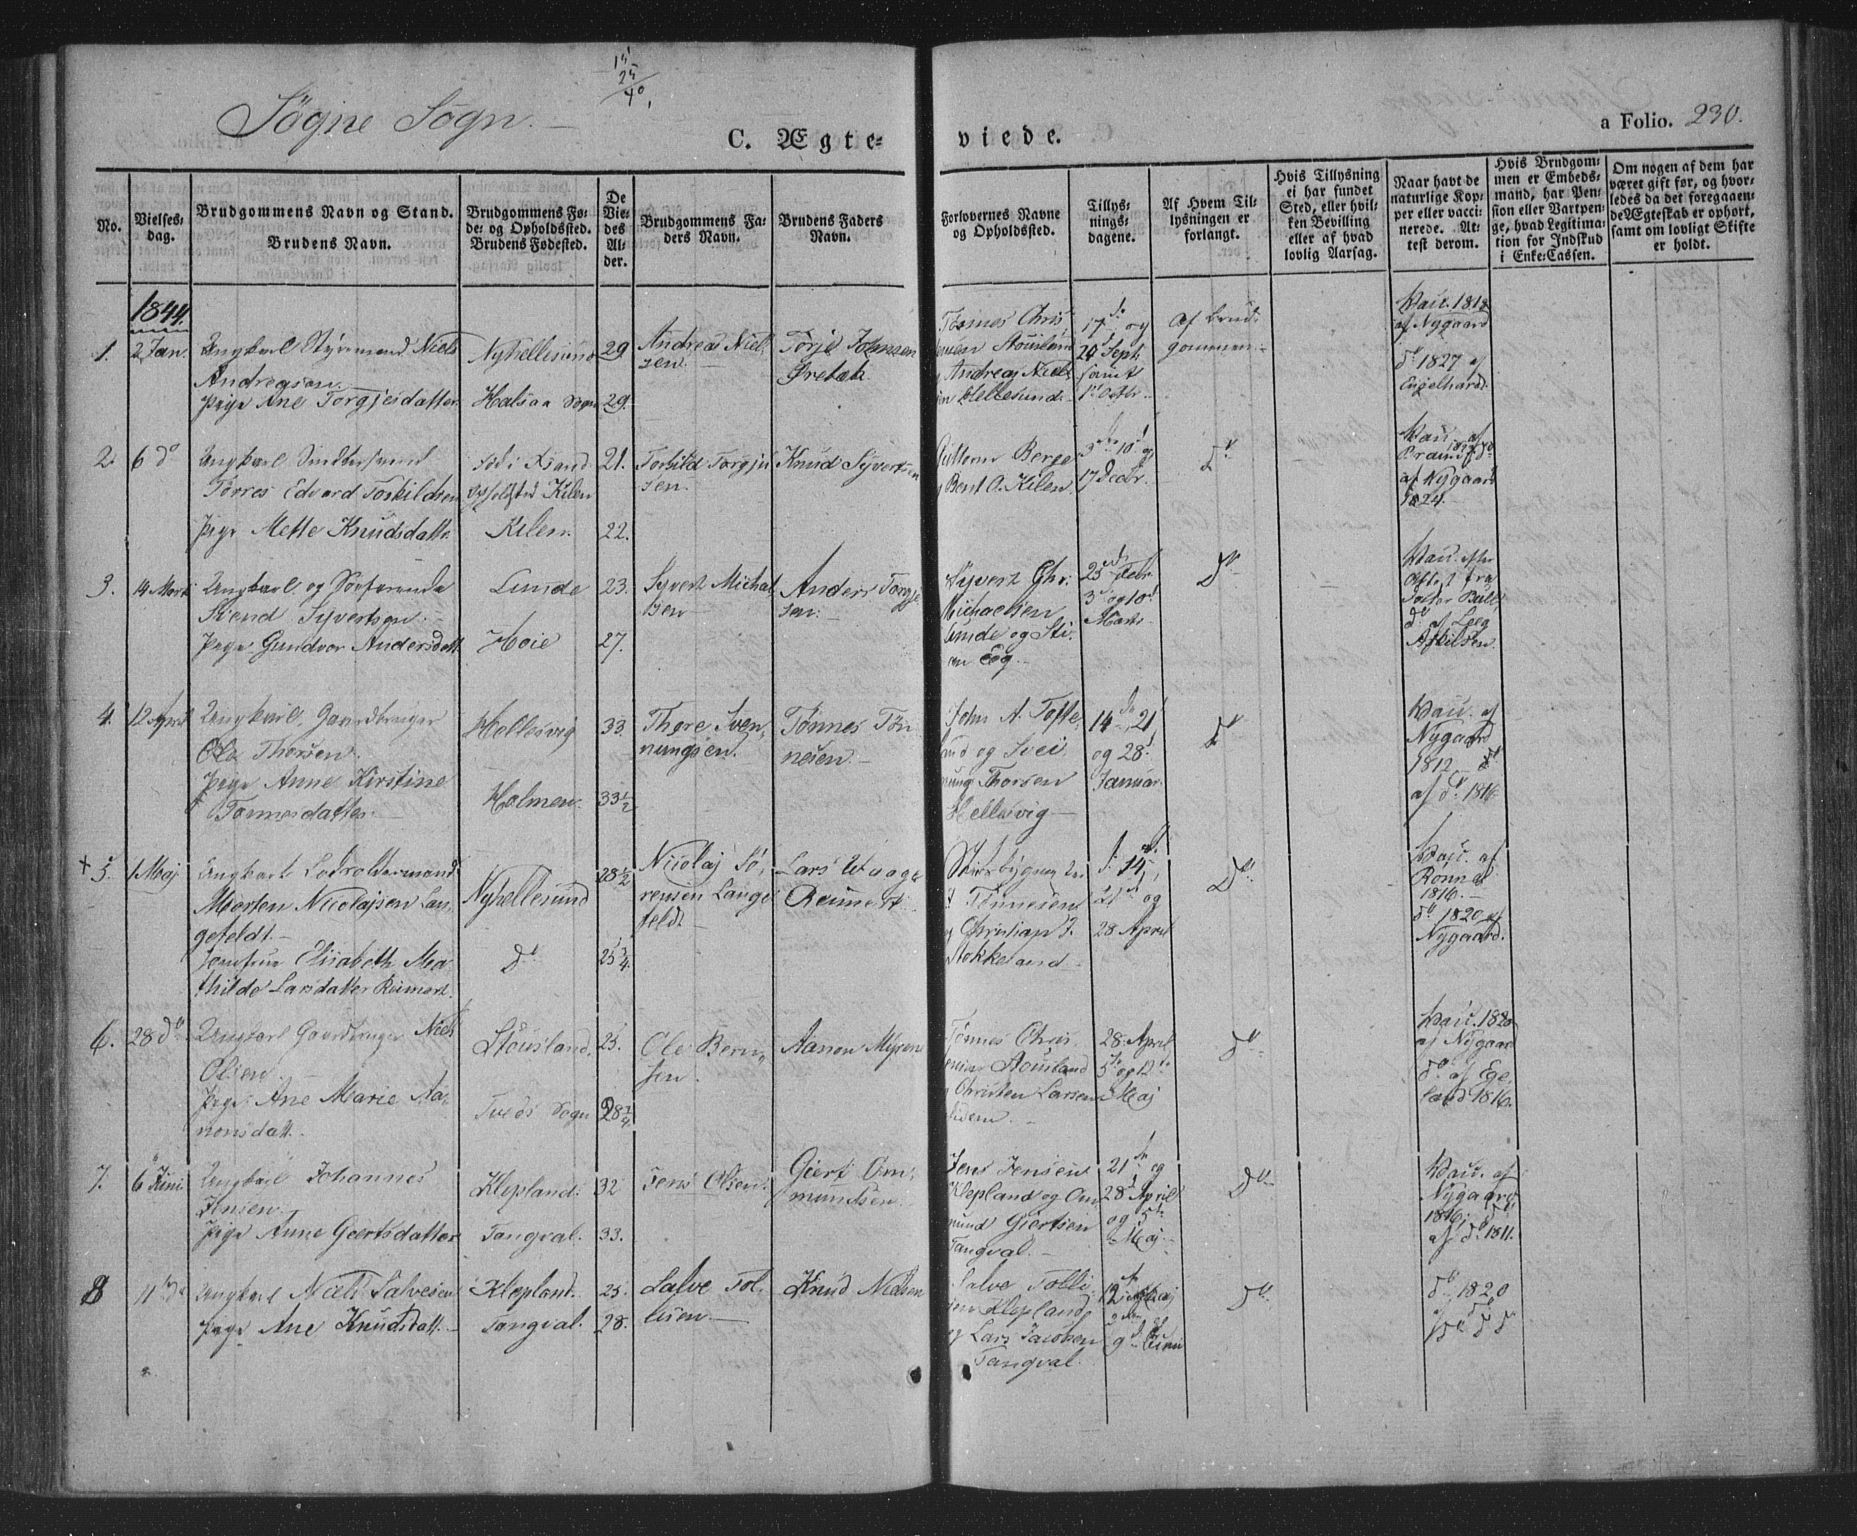 15
25
40
Søgne Sogn.
C. Ægte-
viede.
a Folio. 230.
No.
Vielses-
dag.
Brudgommens Navn og Stand.
Brudens Navn.
Brudgommens Fø-
de- og Opholdssted.
Brudens Fødested.
De
Vie-
des
Al-
der.
Brudgommens Fa-
ders Navn.
Brudens Faders
Navn.
Forlovernes Navne
og Opholdssted.
Tillys-
nings-
dagene.
Af Hvem Til-
lysningen er
forlangt.
Hvis Tillysning
ei har fundet
Sted, eller hvil-
ken Bevilling
eller af hvad
lovlig Aarsag.
Naar havt de
naturlige Kop-
per eller vacci-
nerede. At-
test derom.
Hvis Brudgom-
men er Embeds-
mand, har Pen-
sion eller Vartpen-
ge, hvad Legitima-
tion for Indskud
i Enke-Cassen.
Om nogen af dem har
været gift før, og hvor-
ledes da det foregaaen-
de Ægteskab er ophørt,
samt om lovligt Skifte
er holdt.
1844.
1. 2 Jan.
Ungkarl Styrmand Niels
Andreasen.
Pige Ane Torgjesdatter
Nyhellesund
Halsaa Sogn
29
29.
Andreas Niel-
sen.
Torje Johnsen
Tønnes Chris
Andreas Niels
Hellesund.
17de og
24 Sept.
samt
1st Octbr.
af Brud-
gommen.
Vacc. 1818
af Nygaard
do 1827 af
Engelhardt.
2. 6 do
Ungkarl
Tørres Edvard Torkildsen
Pige Mette Knudsdatter
Opholdsted Kilen
Kilen.
21.
22.
Torkild Torgju
sen.
Knud Syvertsen
Guttorm Berge
Bent O. Kilen.
3die 10de og
17 Decbr.
do
Vacc. af
af Nygaard
1824.
3. 14 Marts
Ungkarl og Søefarende
Svend Syvertsen.
Pige Gundvor Andersdatt
Lunde
Høie
23.
27.
Syvert Michael
sen
Anders Torgje
sen.
Syvert Chr.
Michaelsen
Lunde og
Eeg.
25de Febr
3de og 10de
Marts
do
Vacc. efter
Attest fra
do af Leeg
Askilsen
4. 12 April
Ungkarl. Gaardbruger
Ole Thorsen.
Pige Anne Kirstine
Tønnesdatter.
Hellesvig
Holmen.
33.
33 1/2
Thore Sven
nungsen.
Tønnes Tøn
nesen.
John A. Tofte
land og Svei
nung Thorsen
Hellesvig
14de, 21
og 28de
Januar
do
Vacc. af
Nygaard
1812. do
af do 1816.
+ 5. 1 Maj
Ungkarl Lodsoldermand
Morten Nicolajsen Lan-
gefeldt.
Jomfrue Elisabeth Ma-
thilde Larsdatter Reimert.
Nyhellesund
do
28 1/2
25 3/4
Nicolaj Sø-
rensen Lange
feldt
Lars Waage
Reimert
Skibsbygmester
Tønnesen
og Christian J.
Stokkeland
d. 14de,
21de og
28 April
do
Vacc. af
Rønne
1816.
do 1820 af
Nygaard.
6. 28 do
Ungkarl Gaardbruger Niels
Olsen.
Pige Ane Marie Aa-
nonsdatt.
Stousland.
Tveds Sogn
25.
28 1/4
Ole Bern-
sen.
Aanon Myren
Tønnes Chris
Stousland
og Christen Larsen
ibidem.
28 April
5te og 12te
Maj
do
Vacc. 1820
af Nygaard
do af Ege-
land 1816.
7. 6 Juni
Ungkarl Johannes
Jensen.
Pige Anne Geertsdatter
Klepland.
Tangval.
32
33.
Jens Olsen.
Giert Om-
mundsen.
Jens Jensen
Klepland og Om
mund Giertsen
Tangval.
21de og
28de April
og 5te
Maj
do
Vacc. af
Nygaard
1816. do
af do 1811.
8 11 do
Ungkarl Niels Salvesen
Pige Ane Knudsdatt.
Klepland.
Tangval.
25.
28.
Salve Tol-
lisen
Knud Nielsen
Salve Tolli
sen Klepland
og Lars Jacobsen
Tangval.
12te Maj
9de Juni
do
do 1820
af do